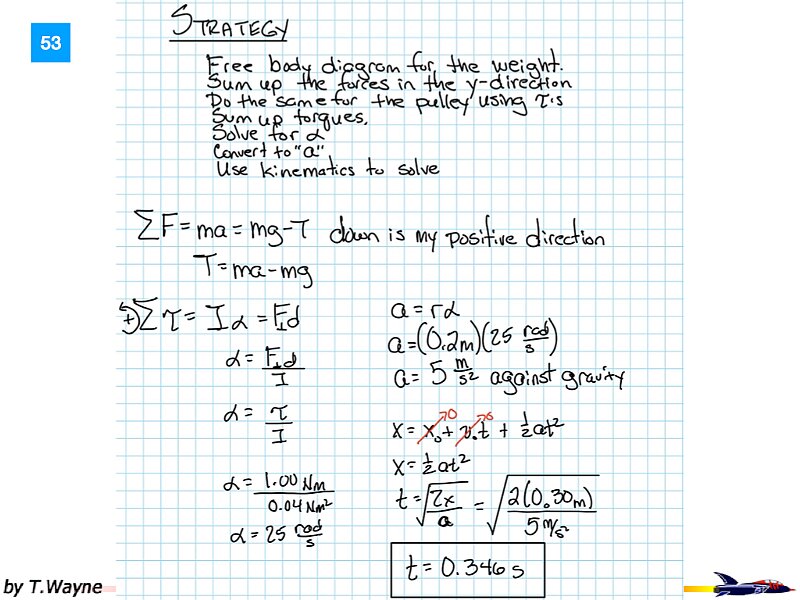 53
STRATEGY
Free body diagram for the weight.
Sum up the forces in the y-direction
Do the same for the pulley using τ's
Sum up torques.
Solve for α
Convert to "a"
Use kinematics to solve
ΣF = ma = mg - T down is my positive direction
T = ma - mg
+ Στ = Iα = F⊥d
α = F⊥d / I
α = τ / I
α = 1.00 Nm / 0.04 Nm²
α = 25 rad/s
a = rα
a = (0.2m)(25 rad/s)
a = 5 m/s² against gravity
x = x₀ + v₀t + ½at²
0 0
x = ½at²
t = √(2x/a) = √(2(0.30m) / 5 m/s²)
t = 0.346 s
by T.Wayne